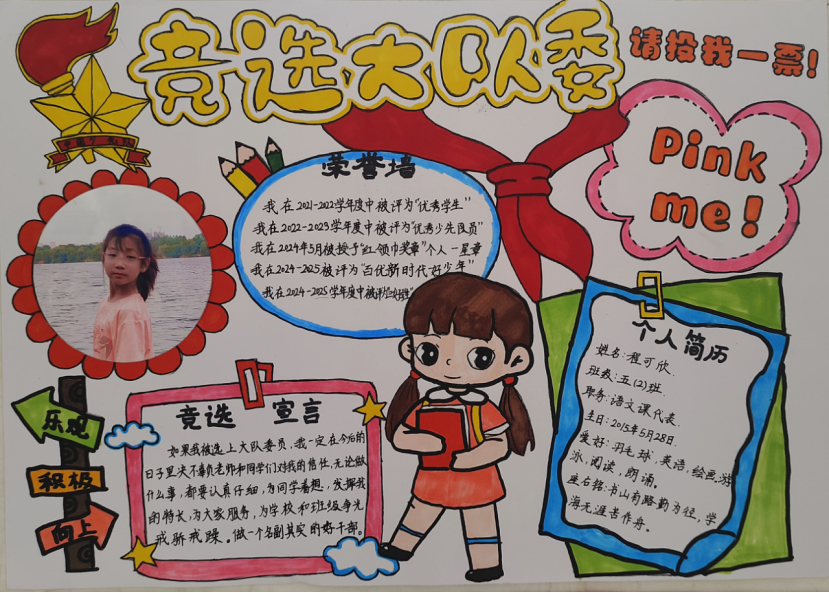 竞选大队委
请投我一票!
Pink
me!
荣誉墙
我在2021-2022学年度中被评为“优秀学生”
我在2022-2023学年度中被评为“优秀少先队员”
我在2024年5月被授予“红领巾奖章”个人一星章
我在2024-2025被评为“百优新时代好少年”
我在2024-2025学年度中被评为
个人简历
姓名:程可欣.
班级:五(2)班.
职务:语文课代表.
生日:2015年5月28日.
爱好:羽毛球,英语,绘画,游
泳,阅读,朗诵。
座右铭:书山有路勤为径,学
海无涯苦作舟。
竞选 宣言
如果我被选上大队委员,我一定在今后的
日子里决不辜负老师和同学们对我的信任,无论做
什么事,都要认真仔细,为同学着想,发挥我
的特长,为大家服务,为学校和班级争光
戒骄戒躁。做一个名副其实的好干部。
乐观
积极
向上